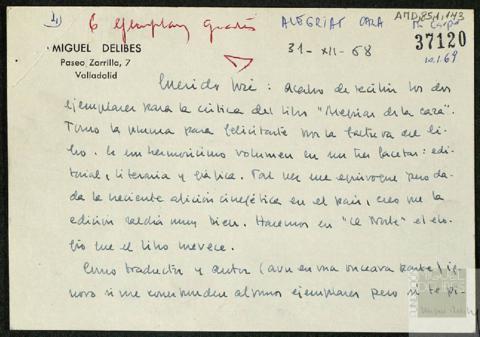 6 ejemplares gratis
ALEGRIAS CAZA
AMD,85,1,143
37120
10.1.69
MIGUEL DELIBES
Paseo Zorrilla, 7
Valladolid
31-XII-68
Querido José: Acabo de recibir los dos
ejemplares para la crítica del libro "Alegrías de la caza".
Tomo la pluma para felicitarte por la factura del li-
bro. Es un hermosísimo volumen en sus tres facetas: edi-
torial, literaria y gráfica. Tal vez me equivoque pero da-
da la reciente afición cinegética en el país, creo que la
edición saldrá muy bien. Haremos en "El Norte" el elo-
gio que el libro merece.
Como traductor y autor (aun en una onceava parte) ig-
noro si me corresponden algunos ejemplares pero si te pi-